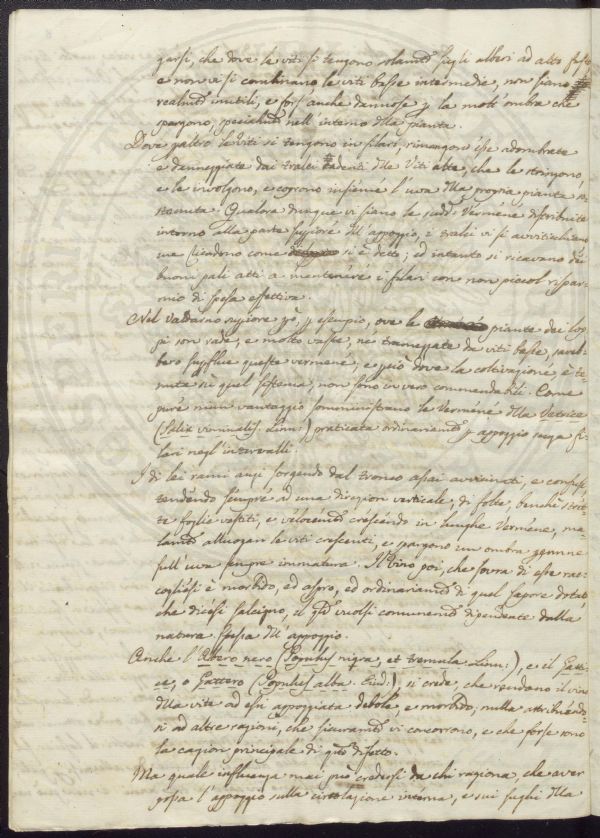 garsi, che dove le viti si tengono solam.te sugli alberi ad alto fusto
e non vi si combinano le viti basse intermedie, non siano
realm.te inutili, e fors'anche dannose p. la molt'ombra che
spargono, specialm.te nell'interno d.lla pianta.
Dove p. altro le Viti si tengono in filari, rimangon esse adombrate
e danneggiate dai tralci cadenti d.lle Viti alte, che le stringono,
e le involgono, e coprono insieme l'uva d.lla propria pianta so-
stenuta. Qualora dunque vi siano le sudd.e Vermene distribuite
intorno alla parte sup.iore d.ll'appoggio, i tralci vi si avviticchiano
come si è detto, ed intanto si ricavano dei
buoni pali atti a mantenere i filari con non piccol rispar-
mio di spesa effettiva.
Nel Valdarno sup.iore p.ò, p. esempio, ove le piante dei lop-
pi son rade, e molto vaste, nè tramezzate da viti basse, sareb-
bero sup.flue queste vermene, e p.ciò dove la coltivazione è te-
nuta su quel sistema, non sono in vero commendabili. Come
pure niun vantaggio somministrano le Vermene d.lla Vetrice
(Salix viminalis. Linn:) praticata ordinariam.te p. appoggio senza fi-
lari negl'intervalli.
I di lei rami anzi sorgendo dal tronco assai avvicinati, e confusi,
tendendo sempre ad una direzion verticale, di folte, benchè stret-
te foglie vestiti, e velocem.te crescendo in lunghe Vermene, ma-
lam.te alluogan le viti crescenti, e spargono un ombra p.enne
sull'uva sempre immatura. Il Vino poi, che sovra di esse rac-
cogliesi è morbido, ed aspro, ed ordinariam.te di quel sapore dotato
che dicesi salcigno, il q.le vuolsi comunem.te dipendente dalla
natura stessa d.ll'appoggio.
Anche l'Albero nero (Populus nigra, et tremula Linn:), e il Gatti-
ce, o Gattero (Populus alba. Eiusd:), si crede, che rendano il vino
d.lla vite ad essi appoggiata debole, e morbido, nulla attribuendo-
si ad altre ragioni, che sicuram.te vi concorrono, e che forse sono
la cagion principale di q.sto difetto.
Ma quale influenza mai può credersi da chi ragiona, che aver
possa l'appoggio sulla circolazione interna, e sui sughi d.lla